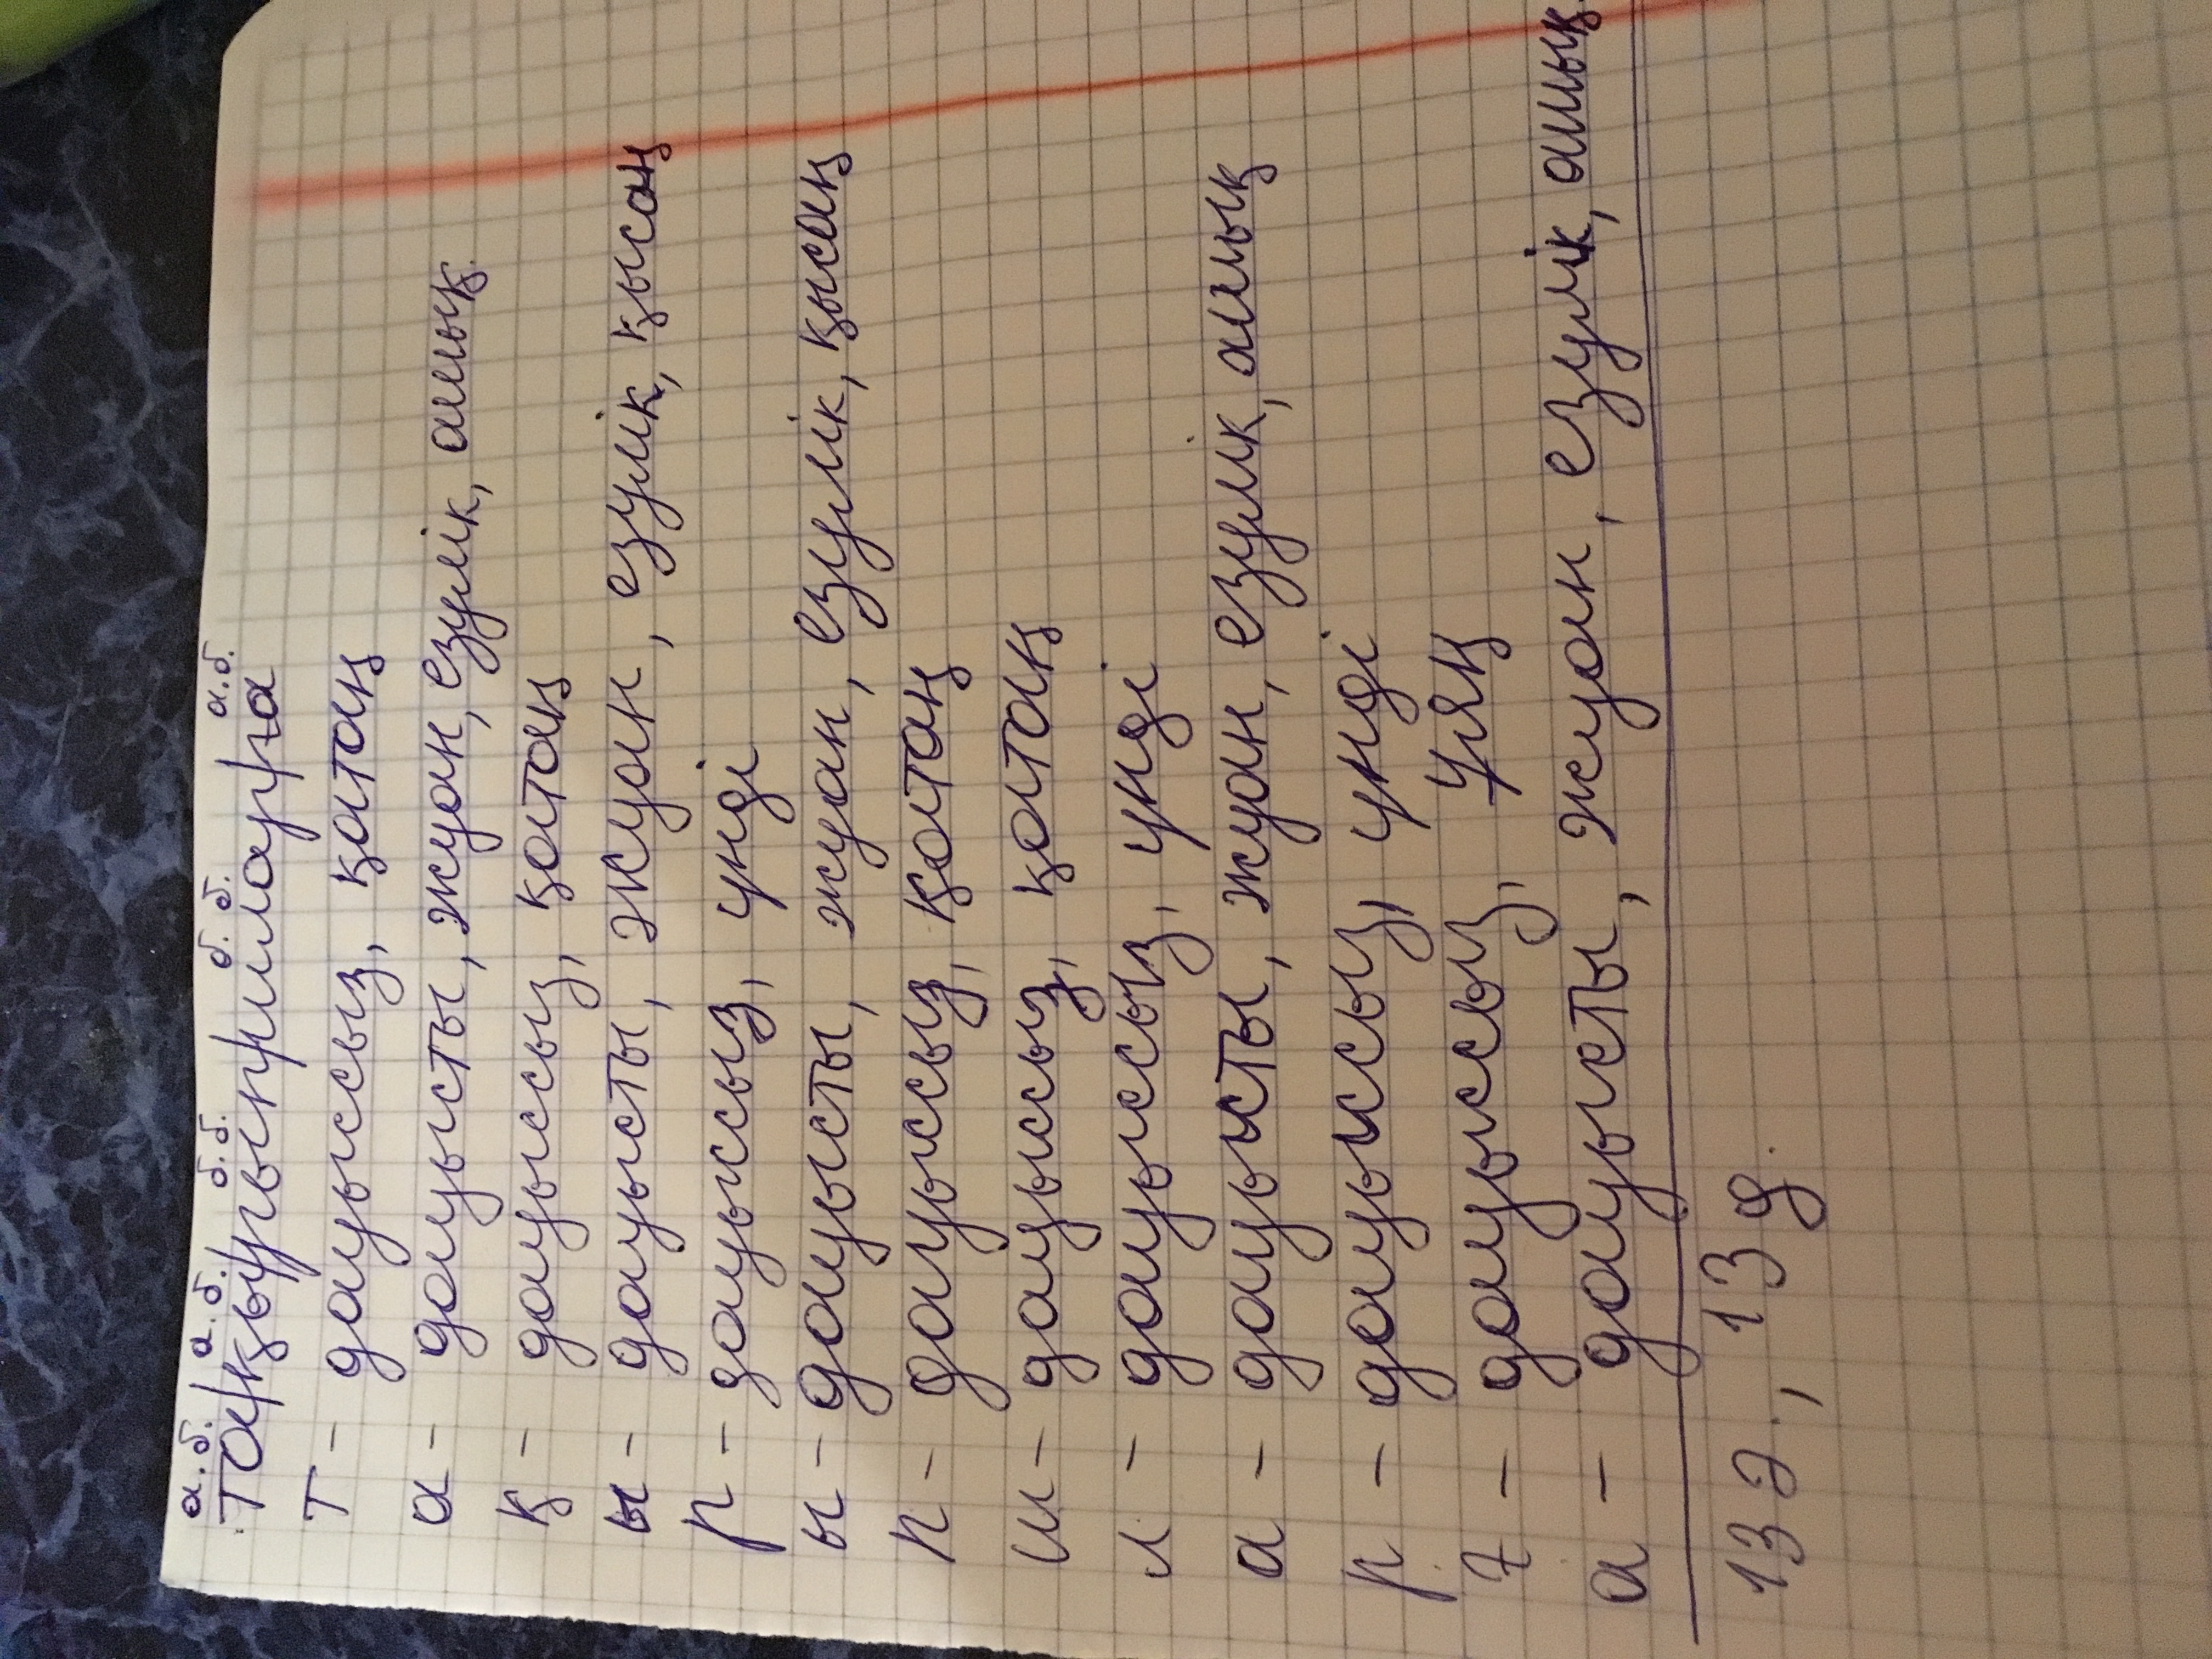 а.б. а.б. б.б. б. б. а.б.
Та/қы/рып/шлар/ға
т - дауыссыз, қатаң
а - дауысты, жуан, езулік, ашық.
қ - дауыссыз, қатаң
ы - дауысты, жуан, езулік, қысаң
р - дауыссыз, үнді
ы - дауысты, жуан, езулік, қысаң
п - дауыссыз, қатаң
ш - дауыссыз, қатаң
л - дауыссыз, үнді
а - дауысты, жуан, езулік, ашық
р - дауыссыз, үнді
ғ - дауыссыз, ұяң
а - дауысты, жуан, езулік, ашық.
13 ә., 13 д.